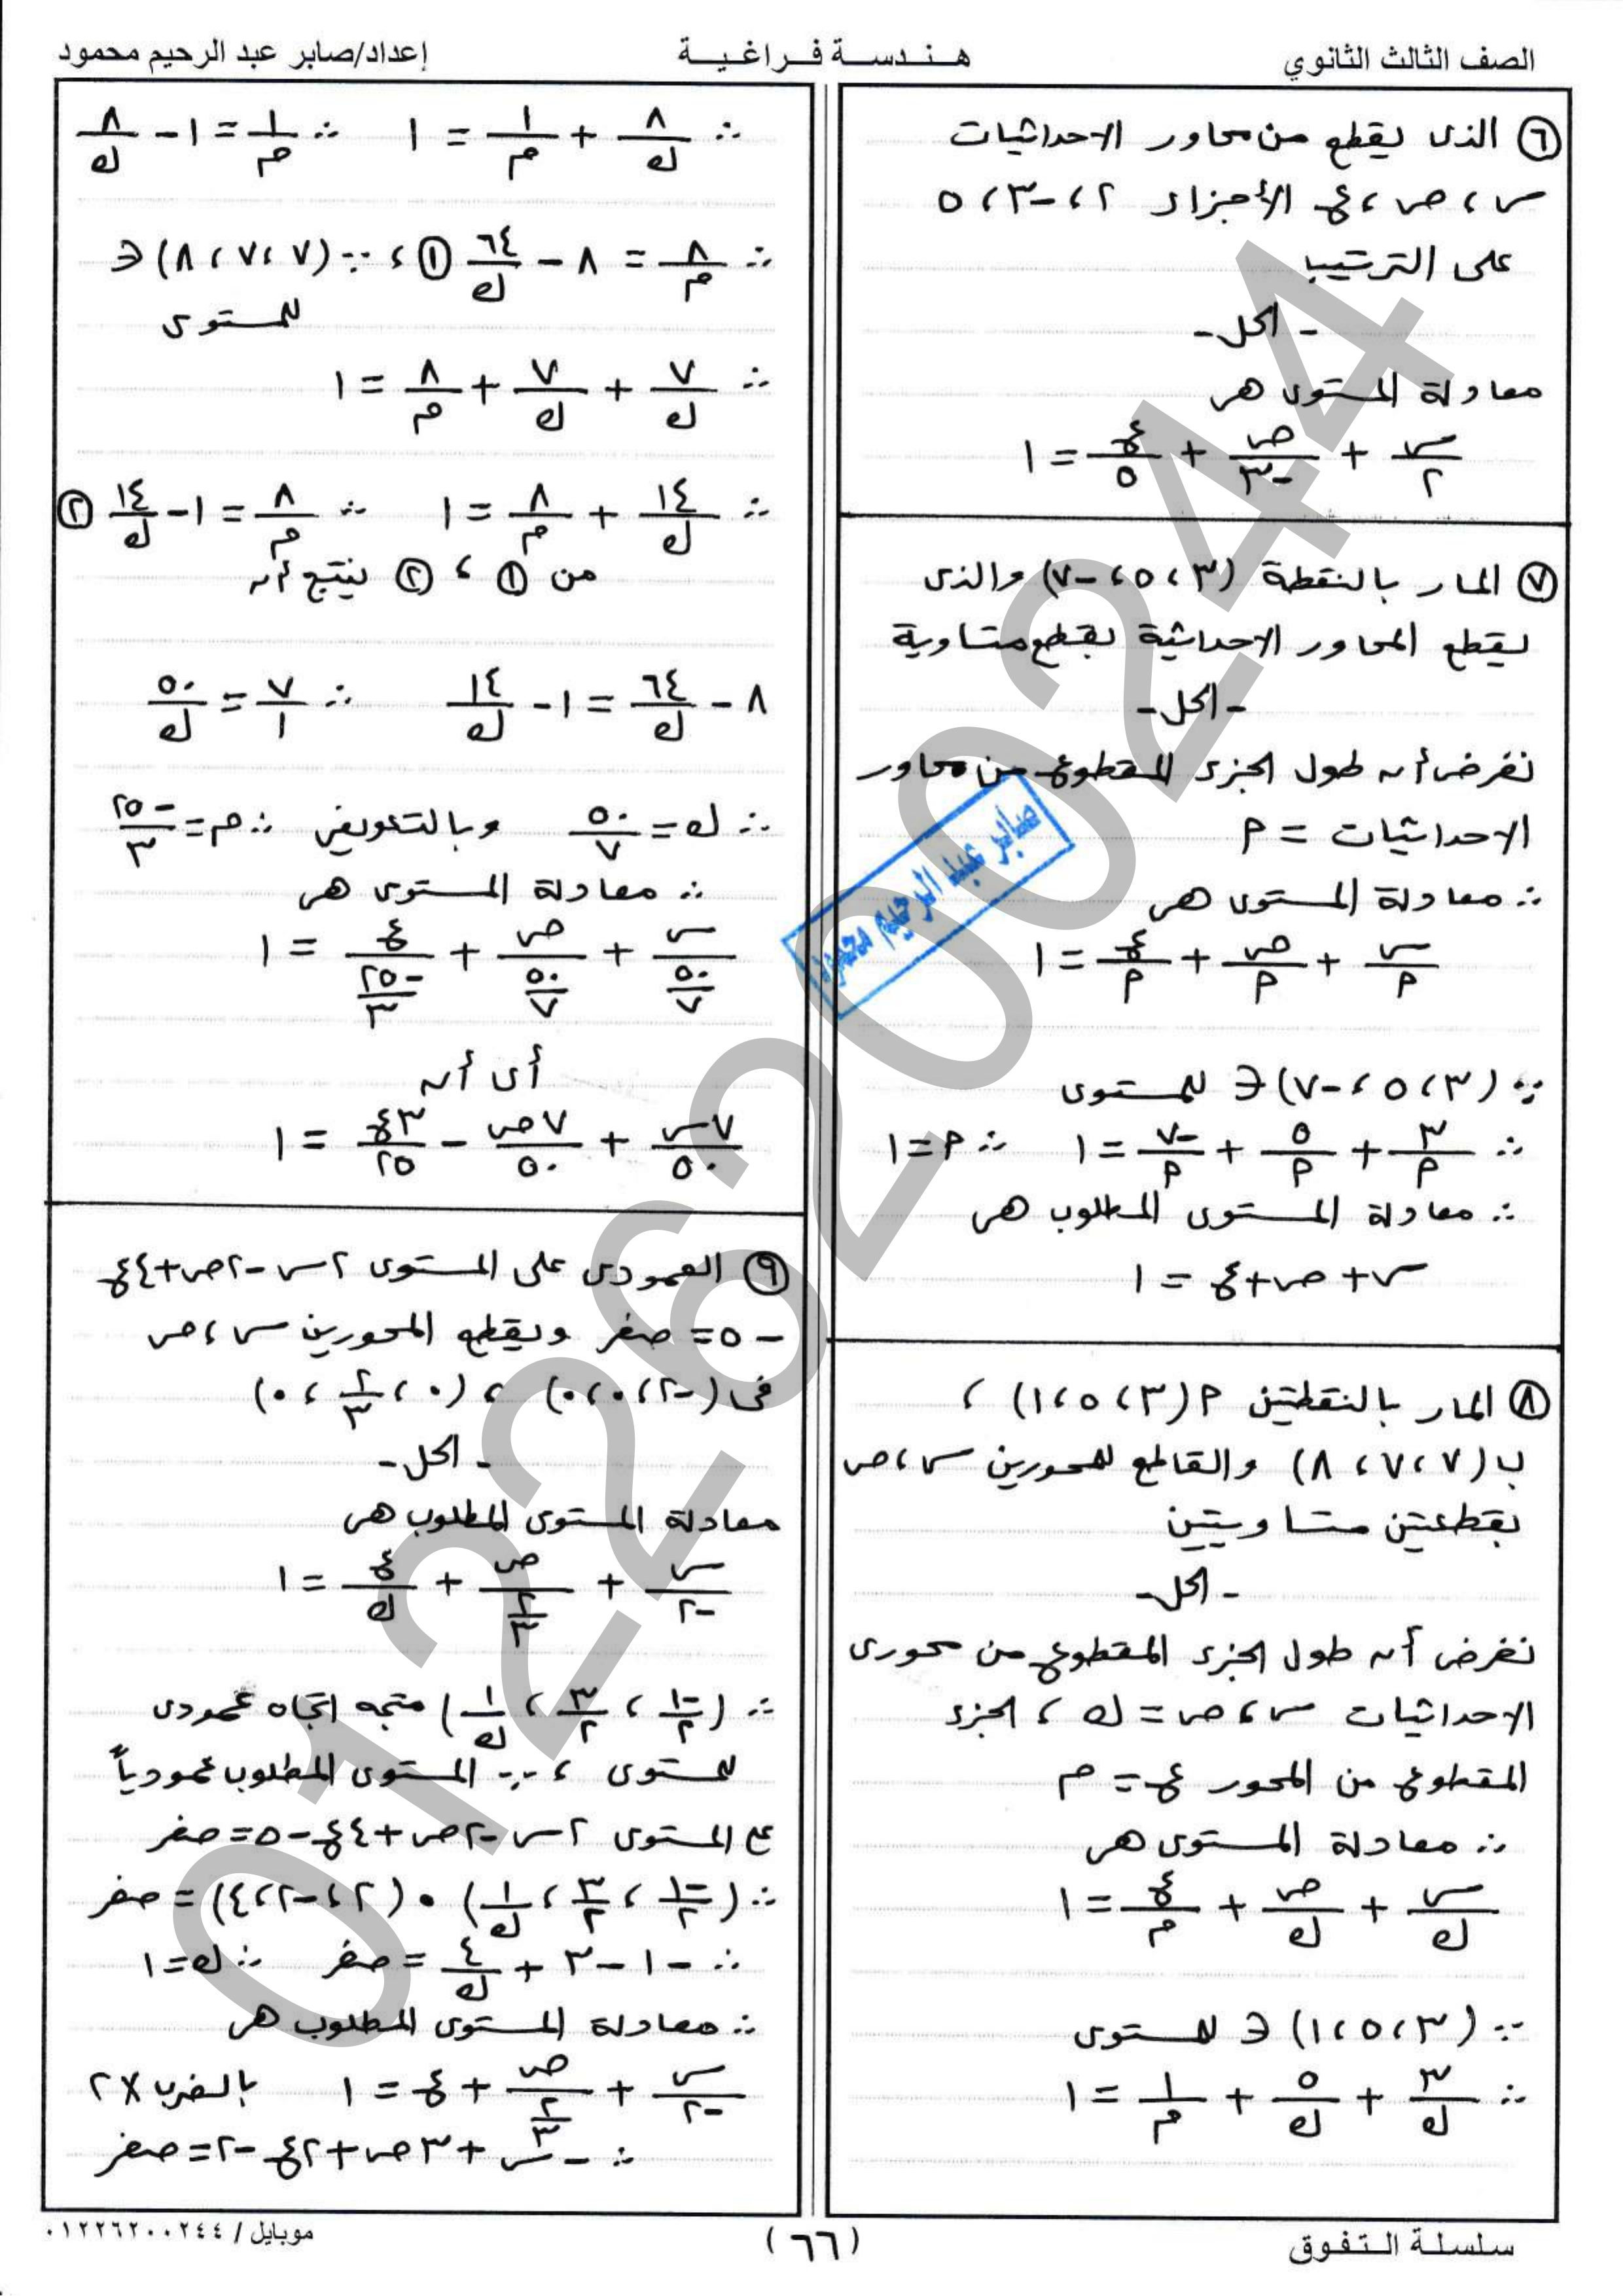 الصف الثالث الثانوي
هـنـدسـة فـراغـيـة
إعداد/صابر عبد الرحيم محمود
٦ الذى يقطع من محاور الاحداثيات
س ، ص ، ع الأجزاء ٢ ، -٣ ، ٥
على الترتيب
- الحل -
معادلة المستوى هى
س/٢ + ص/-٣ + ع/٥ = ١
٧ المار بالنقطة (٣ ، ٥ ، -٧) والذى
يقطع المحاور الاحداثية بقطع متساوية
- الحل -
نفرض أن طول الجزء المقطوع من محاور
الاحداثيات = م
∴ معادلة المستوى هى
س/م + ص/م + ع/م = ١
∵ (٣ ، ٥ ، -٧) ∈ للمستوى
∴ ٣/م + ٥/م + -٧/م = ١ ∴ م = ١
∴ معادلة المستوى المطلوب هى
س + ص + ع = ١
٨ المار بالنقطتين م (٣ ، ٥ ، ١) ،
ب (٧ ، ٧ ، ٨) والقاطع للمحورين س ، ص
بقطعتين متساويتين
- الحل -
نفرض أن طول الجزء المقطوع من محورى
الاحداثيات س ، ص = ك ، الجزء
المقطوع من المحور ع = م
∴ معادلة المستوى هى
س/ك + ص/ك + ع/م = ١
∵ (٣ ، ٥ ، ١) ∈ للمستوى
∴ ٣/ك + ٥/ك + ١/م = ١
∴ ٨/ك + ١/م = ١ ∴ ١/م = ١ - ٨/ك
∴ ٨/م = ٨ - ٦٤/ك ① ، ∵ (٧ ، ٧ ، ٨) ∈
للمستوى
∴ ٧/ك + ٧/ك + ٨/م = ١
∴ ١٤/ك + ٨/م = ١ ∴ ٨/م = ١ - ١٤/ك ②
من ① ، ② ينتج أن
٨ - ٦٤/ك = ١ - ١٤/ك ∴ ٧/١ = ٥٠/ك
∴ ك = ٥٠/٧ وبالتعويض ∴ م = -٢٥/٣
∴ معادلة المستوى هى
س/(٥٠/٧) + ص/(٥٠/٧) + ع/(-٢٥/٣) = ١
أى أن
٧س/٥٠ + ٧ص/٥٠ - ٣ع/٢٥ = ١
٩ العمودى على المستوى ٢س - ٢ص + ٤ع
- ٥ = صفر ويقطع المحورين س ، ص
فى (-٢ ، ٠ ، ٠) ، (٠ ، ٢/٣ ، ٠)
- الحل -
معادلة المستوى المطلوب هى
س/-٢ + ص/(٢/٣) + ع/ك = ١
∴ (-١/٢ ، ٣/٢ ، ١/ك) متجه اتجاه عمودى
للمستوى ، ∵ المستوى المطلوب عمودياً
ع المستوى ٢س - ٢ص + ٤ع - ٥ = صفر
∴ (-١/٢ ، ٣/٢ ، ١/ك) • (٢ ، -٢ ، ٤) = صفر
∴ -١ - ٣ + ٤/ك = صفر ∴ ك = ١
∴ معادلة المستوى المطلوب هى
س/-٢ + ص/(٢/٣) + ع = ١ بالضرب × ٢
∴ - س + ٣ص + ٢ع - ٢ = صفر
صابر عبد الرحيم محمود
01226200244
سلسلة الـتـفـوق
(٦٦)
موبايل / ٠١٢٢٦٢٠٠٢٤٤